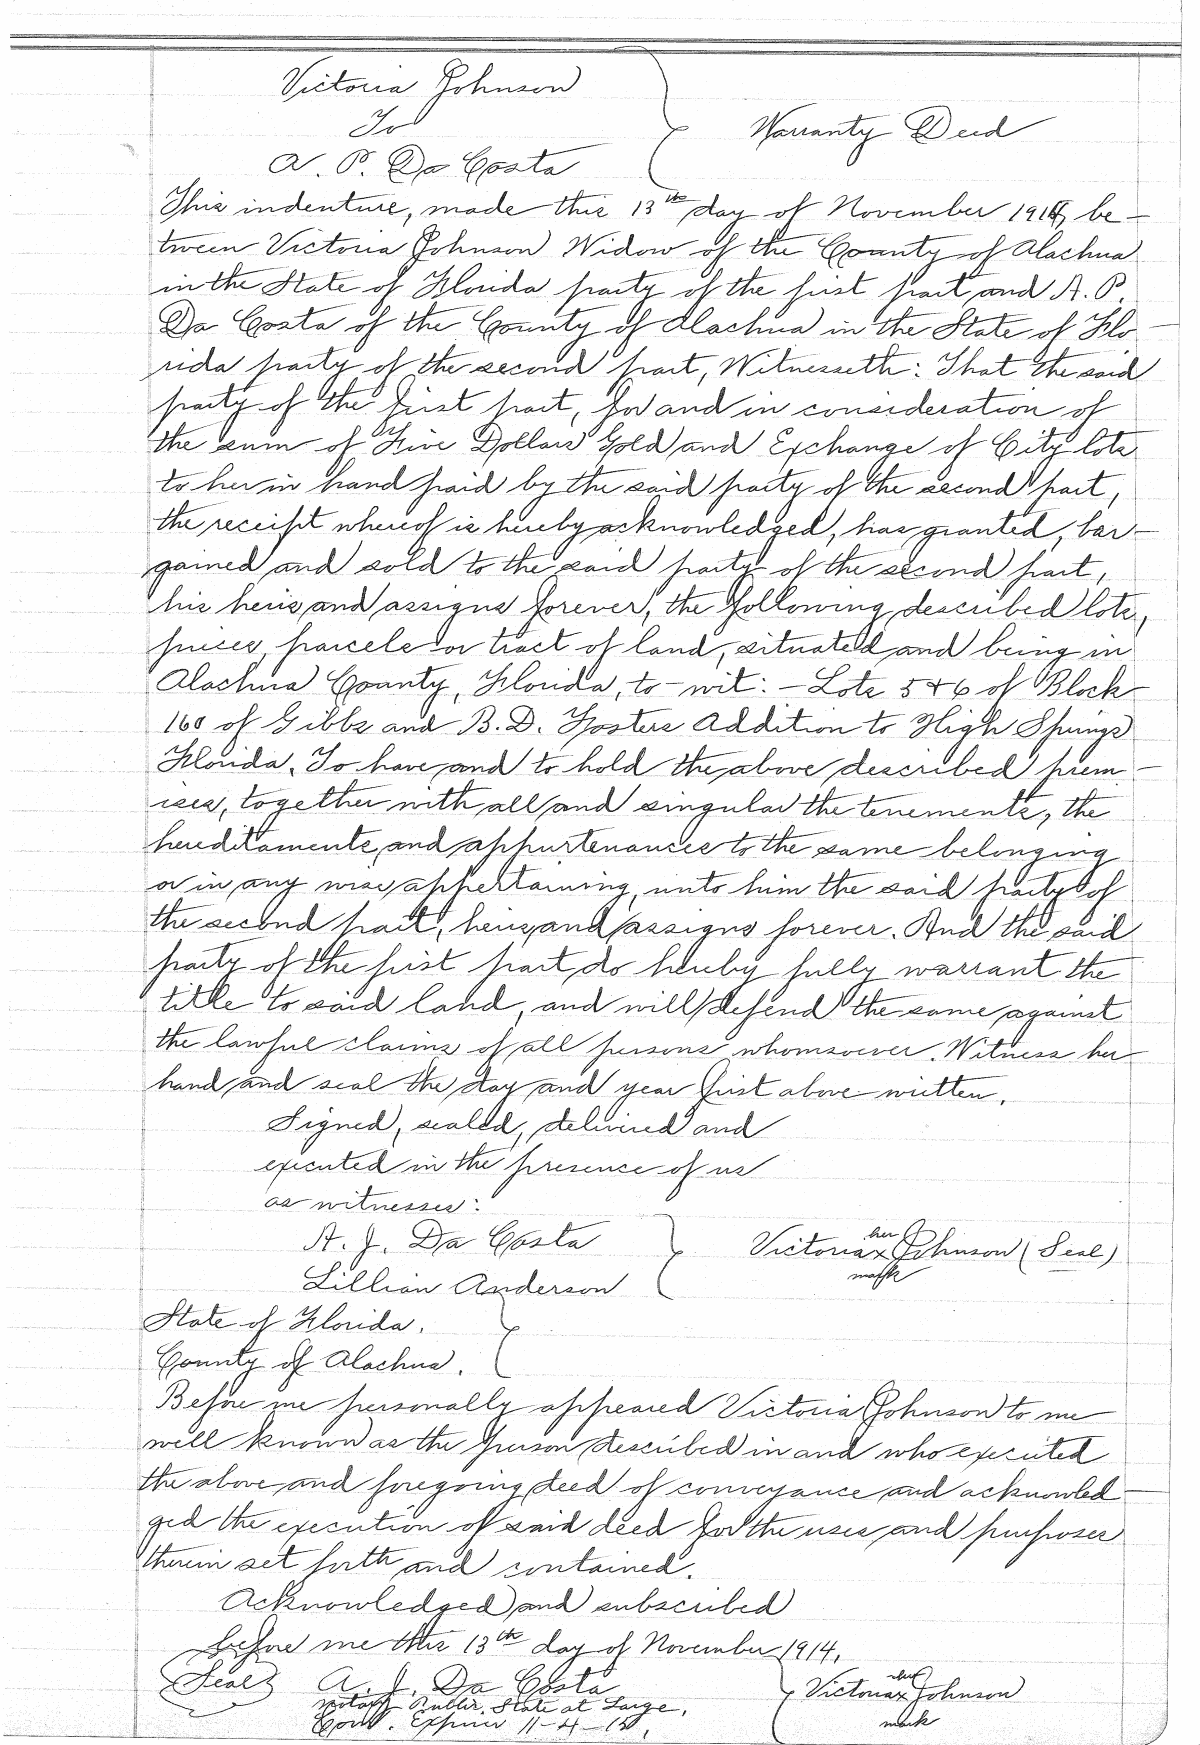 Victoria Johnson
To
A. P. Da Costa
Warranty Deed
This indenture, made this 13th day of November 1914, be-
tween Victoria Johnson Widow of the County of Alachua
in the State of Florida party of the first part and A. P.
Da Costa of the County of Alachua in the State of Flo-
rida party of the second part, Witnesseth: That the said
party of the first part, for and in consideration of
the sum of Five Dollars Gold and Exchange of City lots
to her in hand paid by the said party of the second part,
the receipt whereof is hereby acknowledged, has granted, bar-
gained and sold to the said party of the second part,
his heirs and assigns forever, the following described lots,
pieces, parcels or tract of land, situated and being in
Alachua County, Florida, to-wit:- Lots 5 & 6 of Block
160 of Gibbs and B. D. Fosters Addition to High Springs
Florida. To have and to hold the above described prem-
ises, together with all and singular the tenements, the
hereditaments and appurtenances to the same belonging
or in any wise appertaining, unto him the said party of
the second part, heirs and assigns forever. And the said
party of the first part, do hereby fully warrant the
title to said land, and will defend the same against
the lawful claims of all persons whomsoever. Witness her
hand and seal the day and year first above written.
Signed, sealed, delivered and
executed in the presence of us
as witnesses:
A. J. Da Costa
Lillian Anderson
her
Victoria x Johnson (Seal)
mark
State of Florida.
County of Alachua.
Before me personally appeared Victoria Johnson to me
well known as the person described in and who executed
the above and foregoing deed of conveyance and acknowled-
ged the execution of said deed for the uses and purposes
therein set forth and contained.
Acknowledged and subscribed
before me this 13th day of November 1914.
(Seal) A. J. Da Costa
Notary Public, State at Large.
Com. Expires 11-4-15.
her
Victoria x Johnson
mark